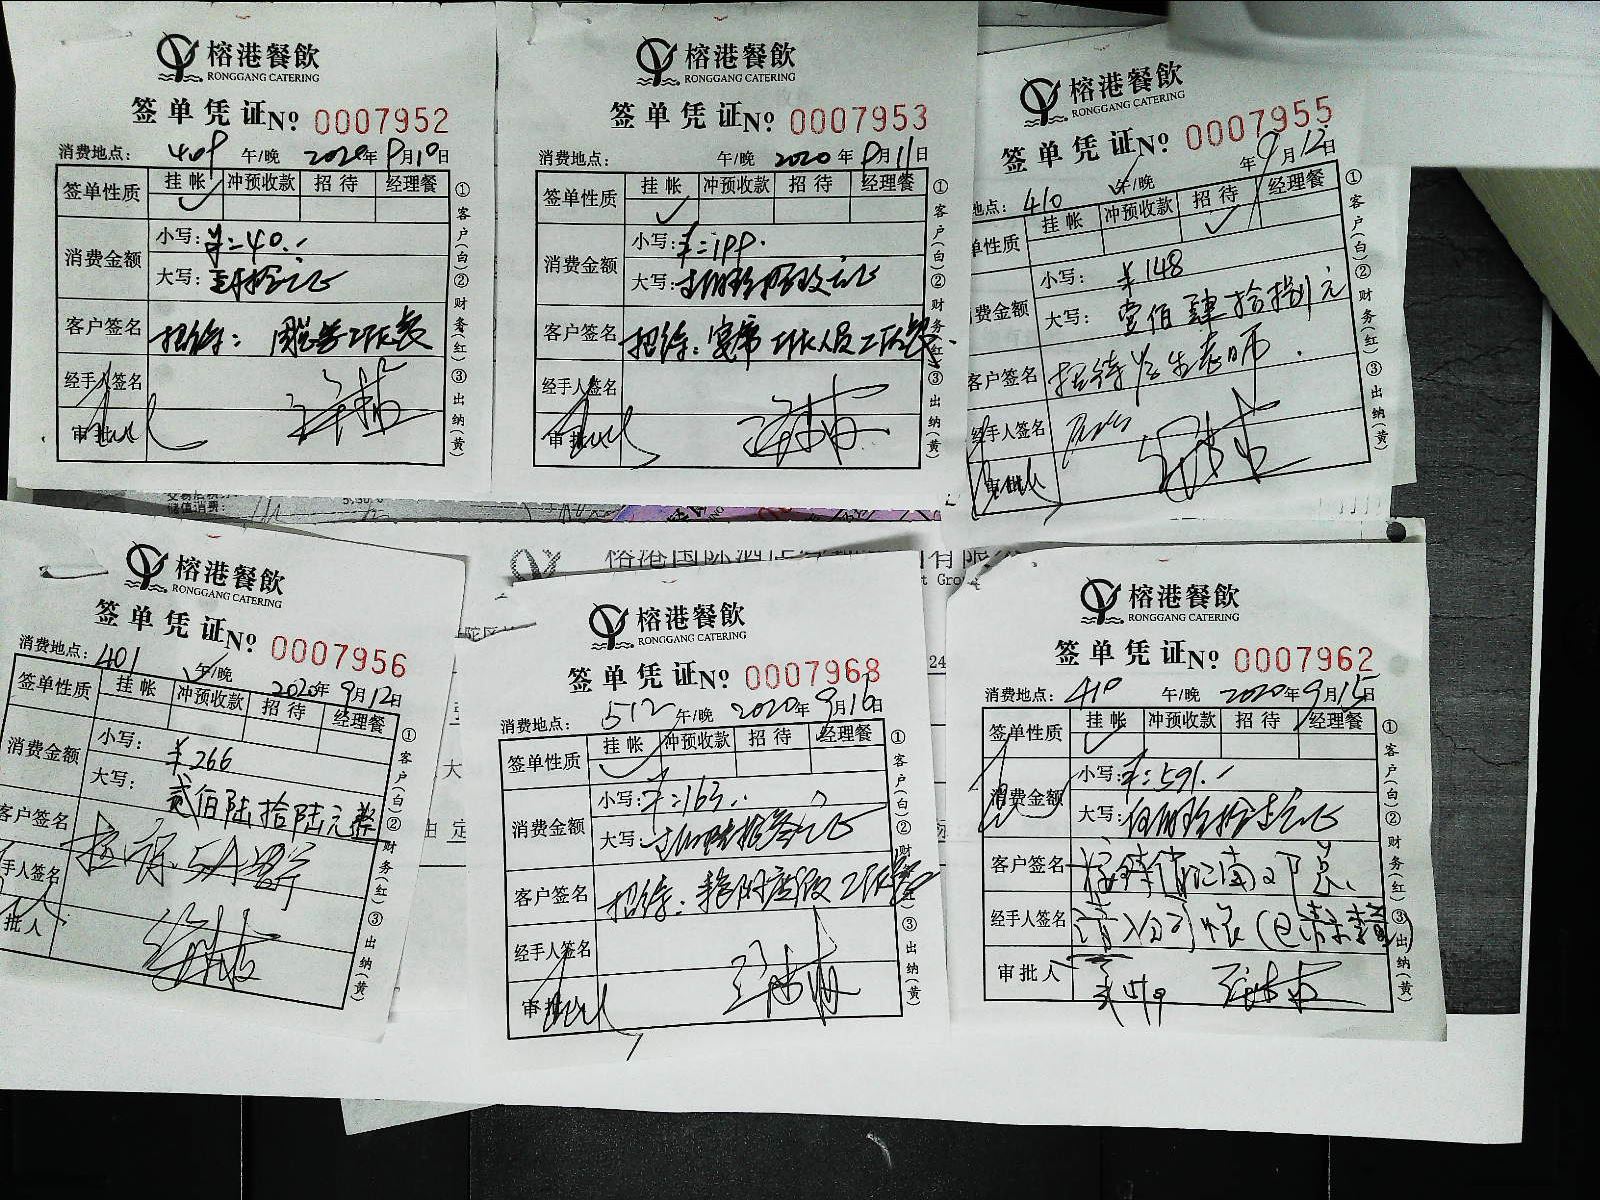 榕港餐飲
RONGGANG CATERING
签单凭证 Nº 0007952
消费地点: 409 午/晚 2020年9月10日
签单性质 挂帐 冲预收款 招待 经理餐
✓
消费金额 小写: ¥:40.
大写:
客户签名 招待:
经手人签名
审批人
①客户(白)②财务(红)③出纳(黄)
榕港餐飲
RONGGANG CATERING
签单凭证 Nº 0007953
消费地点: 午/晚 2020年9月11日
签单性质 挂帐 冲预收款 招待 经理餐
✓
消费金额 小写: ¥:199.
大写:
客户签名 招待: 宴席工作人员工作餐
经手人签名
审批人
①客户(白)②财务(红)③出纳(黄)
榕港餐飲
RONGGANG CATERING
签单凭证 Nº 0007955
地点: 410 午/晚 年9月12日
单性质 挂帐 冲预收款 招待 经理餐
✓
费金额 小写: ¥148
大写: 壹佰肆拾捌元
客户签名 招待
经手人签名
审批人
①客户(白)②财务(红)③出纳(黄)
交易后积分
储值消费:
榕港国际酒店 有限
t Gro
24
大
由 定
榕港餐飲
RONGGANG CATERING
签单凭证 Nº 0007956
消费地点: 401 午/晚
2020年9月12日
签单性质 挂帐 冲预收款 招待 经理餐
消费金额 小写: ¥266
大写: 贰佰陆拾陆元整
客户签名
手人签名
批人
①客户(白)②财务(红)③出纳(黄)
榕港餐飲
RONGGANG CATERING
签单凭证 Nº 0007968
消费地点: 512 午/晚 2020年9月16日
签单性质 挂帐 冲预收款 招待 经理餐
✓
消费金额 小写: ¥:163.
大写:
客户签名 招待: 工作餐
经手人签名
审批人
①客户(白)②财务(红)③出纳(黄)
榕港餐飲
RONGGANG CATERING
签单凭证 Nº 0007962
消费地点: 410 午/晚 2020年9月15日
签单性质 挂帐 冲预收款 招待 经理餐
✓
消费金额 小写: ¥:591.
大写: 伍佰玖拾壹元正
客户签名
经手人签名 请入公司帐
审批人
①客户(白)②财务(红)③出纳(黄)